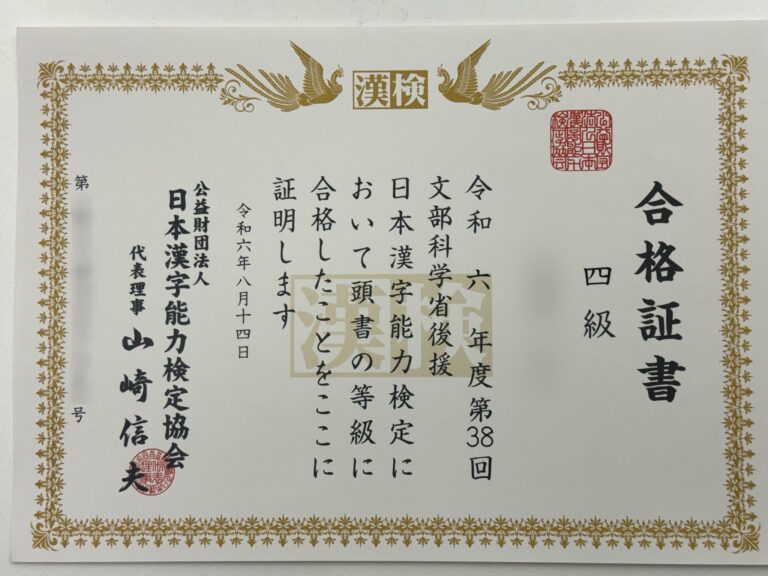 漢検
合格証書
四級
令和 六 年度第38回
文部科学省後援
日本漢字能力検定に
おいて頭書の等級に
合格したことをここに
証明します
令和六年八月十四日
公益財団法人
日本漢字能力検定協会
代表理事 山崎信夫
第 号
漢検